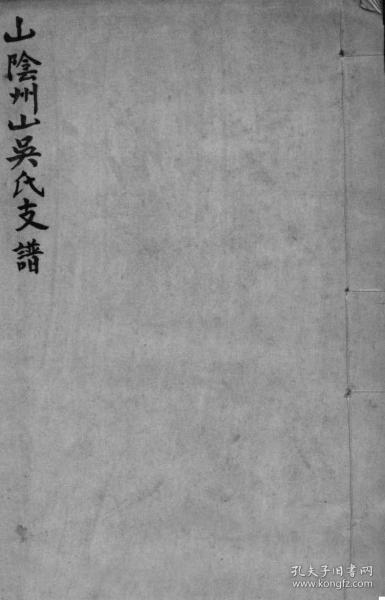 山陰州山吳氏支譜
孔夫子旧书网
www.kongfz.com